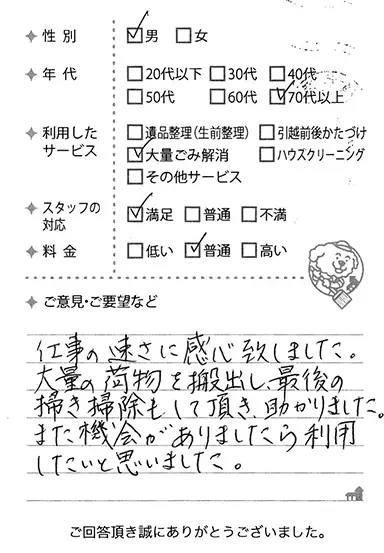 性別 ☑男 □女
年代 □20代以下 □30代 □40代
□50代 □60代 ☑70代以上
利用したサービス □遺品整理(生前整理) □引越前後かたづけ
☑大量ごみ解消 □ハウスクリーニング
□その他サービス
スタッフの対応 ☑満足 □普通 □不満
料金 □低い ☑普通 □高い
ご意見・ご要望など
仕事の速さに感心致しました。
大量の荷物を搬出し、最後の
掃き掃除もして頂き、助かりました。
また機会がありましたら利用
したいと思いました。
ご回答頂き誠にありがとうございました。